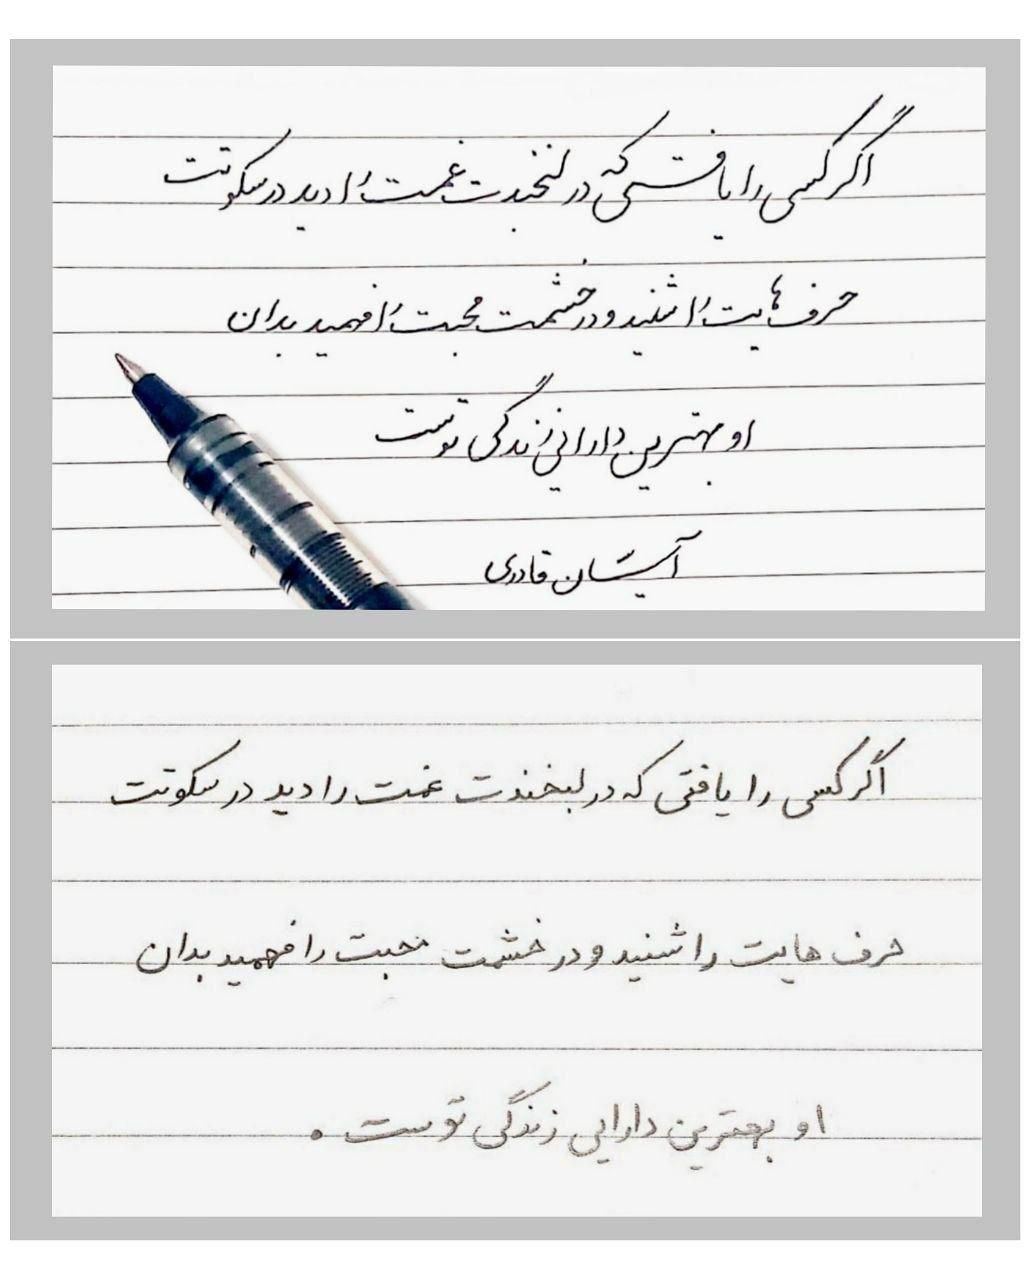 اگر کسی را یافتی که در لبخندت غمت را دید در سکوتت
حرف هایت را شنید و در خشمت محبت را فهمید بدان
او بهترین دارایی زندگی توست
آیسان قادری
اگر کسی را یافتی که در لبخندت غمت را دید در سکوتت
حرف هایت را شنید و در خشمت محبت را فهمید بدان
او بهترین دارایی زندگی توست .